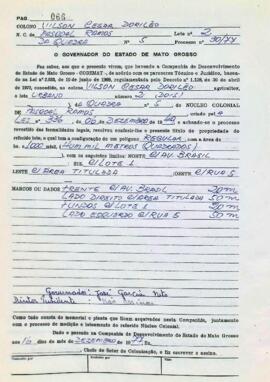 PAG. 066
COLONO WILSON CESAR DORILÊO LOTE 2
N. C. PASCOAL RAMOS
DA QUADRA Nº 5 Processo nº 90/77
O GOVERNADOR DO ESTADO DE MATO GROSSO
Faz saber, aos que a presente virem, que havendo a Companhia de Desenvolvimento
do Estado de Mato Grosso -CODEMAT-, de acordo com os pareceres Técnico e Jurídico, basea-
abril de 1970, concedido ao colono, WILSON CESAR DORILÊO agricultor,
o lote URBANO 2 (DOIS)
DA QUADRA Nº 5 DO NÚCLEO COLONIAL
DE PASCOAL RAMOS, criado pela
LEI nº 336 de 06 DE DEZEMBRO DE 1949 e achando-se o processo
revestido das formalidades legais, resolveu conferir-lhe o presente título de propriedade do
referido lote, o qual tem a configuração de um polígono REGULAR com a área
de 1.000 m² (HUM MIL METROS QUADRADOS)
, com os seguintes limites: NORTE C/AV. BRASIL
SUL C/LOTE 1
LESTE C/AREA TITULADA OESTE C/RUA 5
MARCOS OU DADOS FRENTE C/AV. BRASIL 20 m
LADO DIREITO C/AREA TITULADA 50 m
FUNDOS C/LOTE 1 20 m
LADO ESQUERDO C/RUA 5 50 m
Governador: José Garcia Neto
Como tudo consta do memorial e planta que ficam arquivados nesta Companhia, juntamente
com o processo de medição e loteamento do referido Núcleo Colonial.
Dado e passado na Companhia de Desenvolvimento do Estado de Mato Grosso
aos 16 dias do mês DEZEMBRO de 1977. Eu,
, Chefe do Setor de Colonização, a fiz escrever e assino.